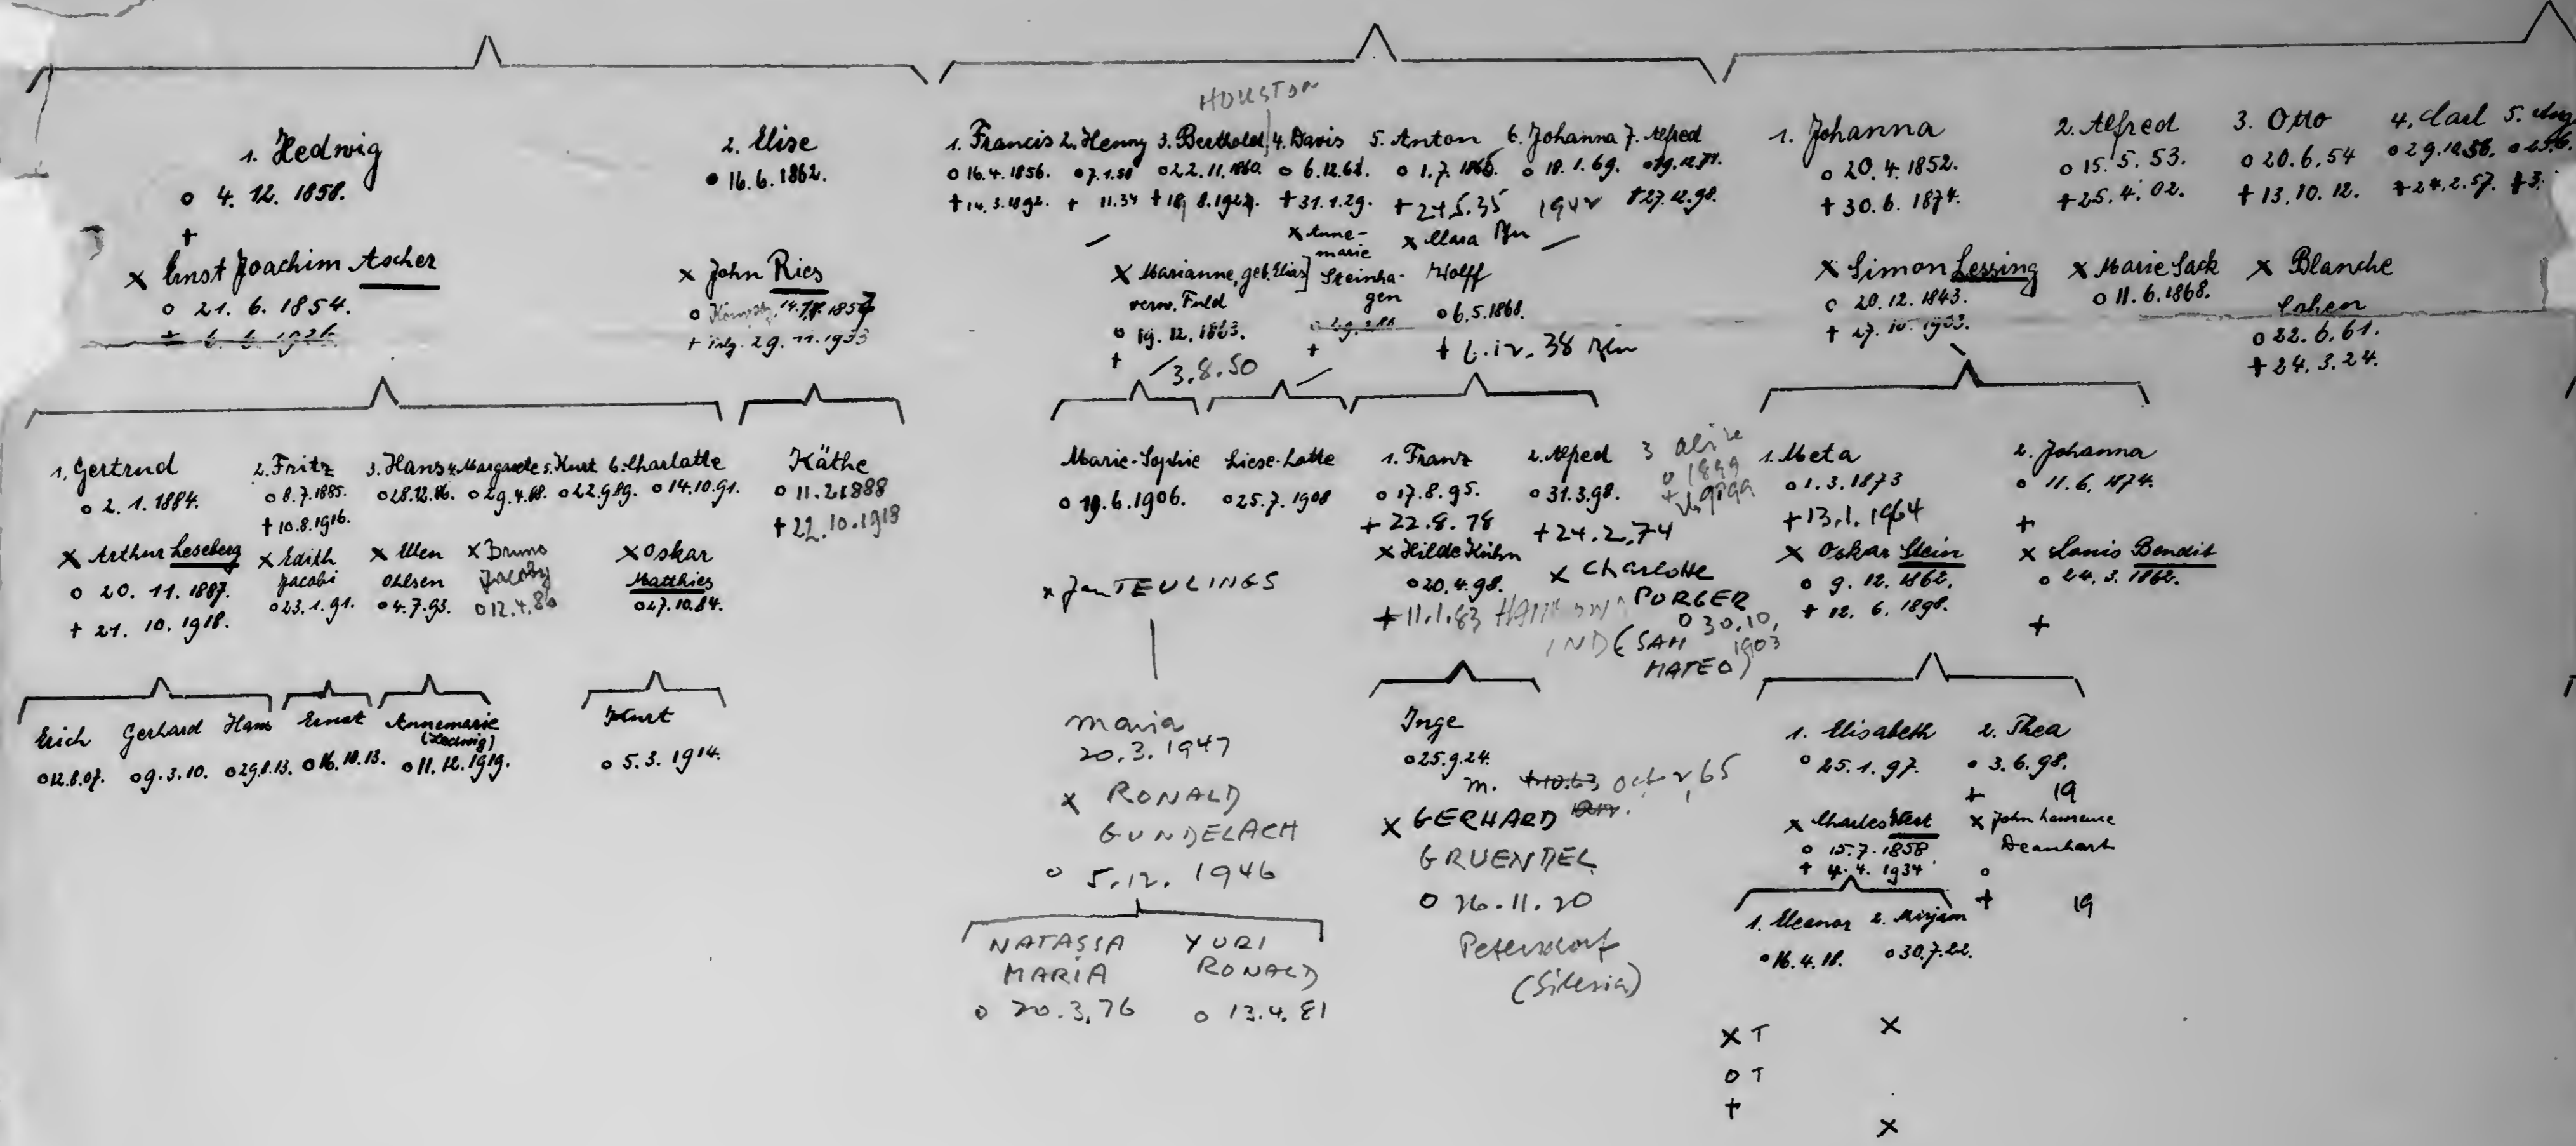 HOUSTON
1. Hedwig
o 4. 12. 1858.
+
x Ernst Joachim Ascher
o 21. 6. 1854.
+ 6. 6. 1926.
2. Elise
o 16. 6. 1862.
x John Ries
+ 29. 11. 1933
1. Gertrud
o 2. 1. 1884.
x Arthur Leseberg
o 20. 11. 1887.
+ 21. 10. 1918.
2. Fritz
o 8. 7. 1885.
+ 10. 8. 1916.
x Edith
Jacobi
o 23. 1. 91.
3. Hans
o 28. 12. 86.
x Ellen
Ohlsen
o 4. 7. 93.
4. Margarete
o 29. 4. 88.
x Bruno
Jacoby
o 12. 4. 80
5. Kurt
o 22. 9. 89.
6. Charlotte
o 14. 10. 91.
x Oskar
Matthies
o 27. 10. 84.
Käthe
o 11. 2. 1888
+ 22. 10. 1918
Erich
o 12. 8. 07.
Gerhard
o 9. 3. 10.
Hans
o 29. 8. 13.
Ernst
o 16. 10. 13.
Annemarie
(Hedwig)
o 11. 12. 1919.
Kurt
o 5. 3. 1914.
1. Francis
o 16. 4. 1856.
+ 14. 3. 1892.
2. Henry
o 7. 1. 58
+ 11. 34
3. Berthold
o 22. 11. 1860.
x Marianne, geb. Elias
verw. Fuld
o 19. 12. 1863.
+ 3. 8. 50
4. Davis
+ 31. 1. 29.
x Anne-
marie
Steinha-
gen
+
5. Anton
+ 24. 5. 35
x Clara
Wolff
o 6. 5. 1868.
+ 6. 12. 38 Bln
6. Johanna
o 18. 1. 69.
1942
7. Alfred
+ 27. 12. 98.
Marie-Sophie
o 19. 6. 1906.
x Jan TEULINGS
Liese-Lotte
o 25. 7. 1908
1. Franz
o 17. 8. 95.
+ 22. 8. 78
x Hilde Kühn
o 20. 4. 98.
+ 11. 1. 83
2. Alfred
o 31. 3. 98.
+ 24. 2. 74
x Charlotte
PORGER
o 30. 10.
1903
IND (SAN
MATEO)
3
o 1899
+
Maria
20. 3. 1947
x RONALD
GUNDELACH
o 5. 12. 1946
NATASSA
MARIA
o 20. 3. 76
YURI
RONALD
o 13. 4. 81
Inge
o 25. 9. 24.
m. Oct 2, 65
x GERHARD
GRUENDEL
o 26. 11. 20
Petersdorf
(Silesia)
1. Johanna
o 20. 4. 1852.
+ 30. 6. 1874.
x Simon Lessing
o 20. 12. 1843.
+ 27. 10. 1903.
2. Alfred
o 15. 5. 53.
+ 25. 4. 02.
x Marie Sack
o 11. 6. 1868.
3. Otto
o 20. 6. 54
+ 13. 10. 12.
x Blanche
Cohen
o 22. 6. 61.
+ 24. 3. 24.
4. Carl
o 29. 10. 56.
+ 24. 2. 57.
5.
1. Meta
o 1. 3. 1873
+ 13. 1. 1964
x Oskar Stein
o 9. 12. 1862.
+ 12. 6. 1898.
2. Johanna
o 11. 6. 1874.
+
x Louis Bendit
o 24. 3. 1862.
+
1. Elisabeth
o 25. 1. 97.
x Charles West
o 15. 7. 1858
+ 4. 4. 1934
2. Thea
o 3. 6. 98.
+ 19
x John Lawrence
Deanhart
o
+ 19
1. Eleanor
o 16. 4. 18.
2. Mirjam
o 30. 7. 22.
x T
o T
+
x
x